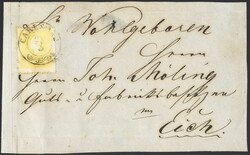 Sr Wohlgeboren
Herrn
Herrn Joh. Mösling
Guts- u Fabriksbesitzer
in
Eich.